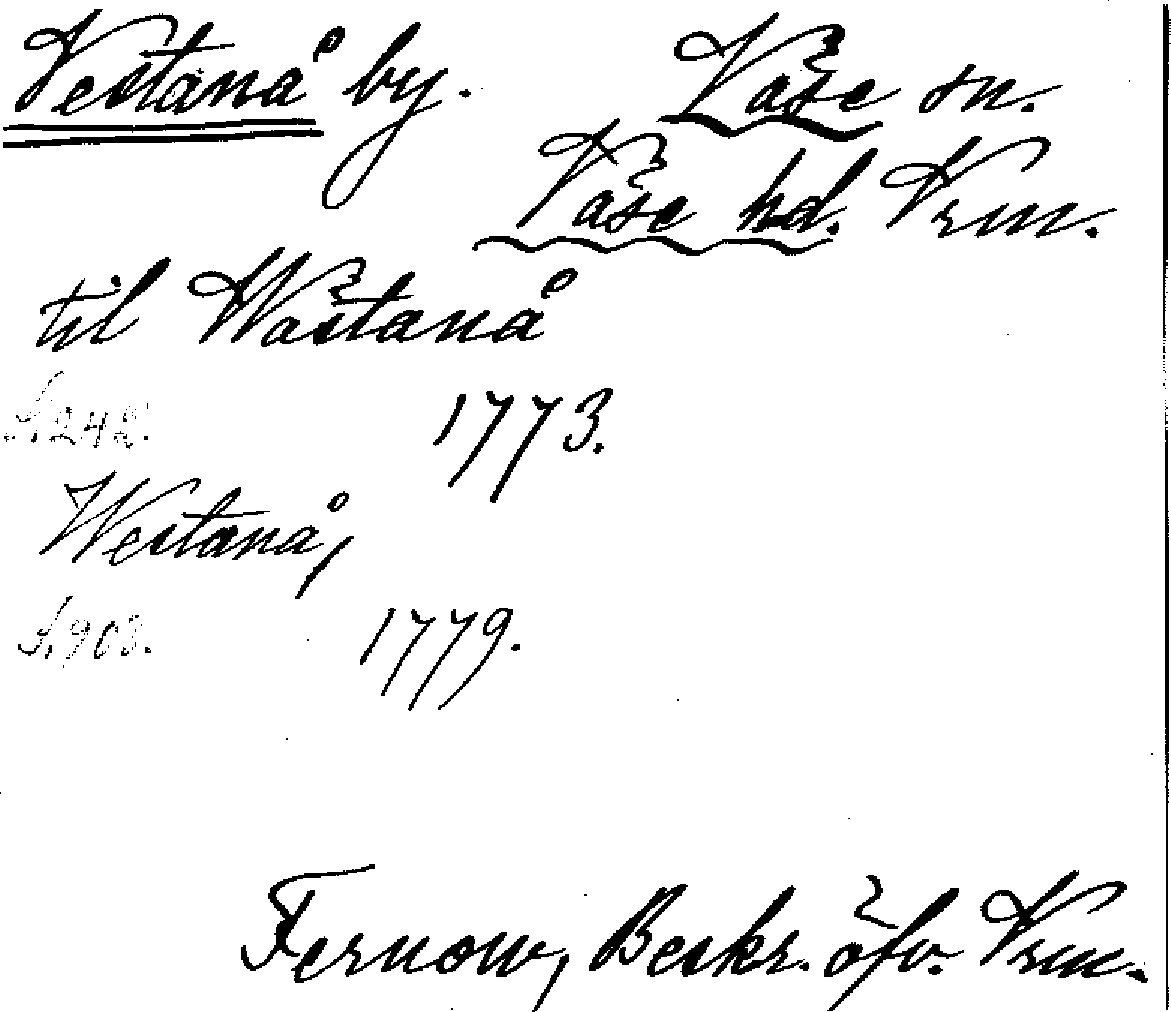 Vestanå by. Väse sn.
Väse hd. Vrm.
til Wästanå
S. 242. 1773.
Westanå,
S. 903. 1779.
Fernow, Beskr. öfv. Vrm.